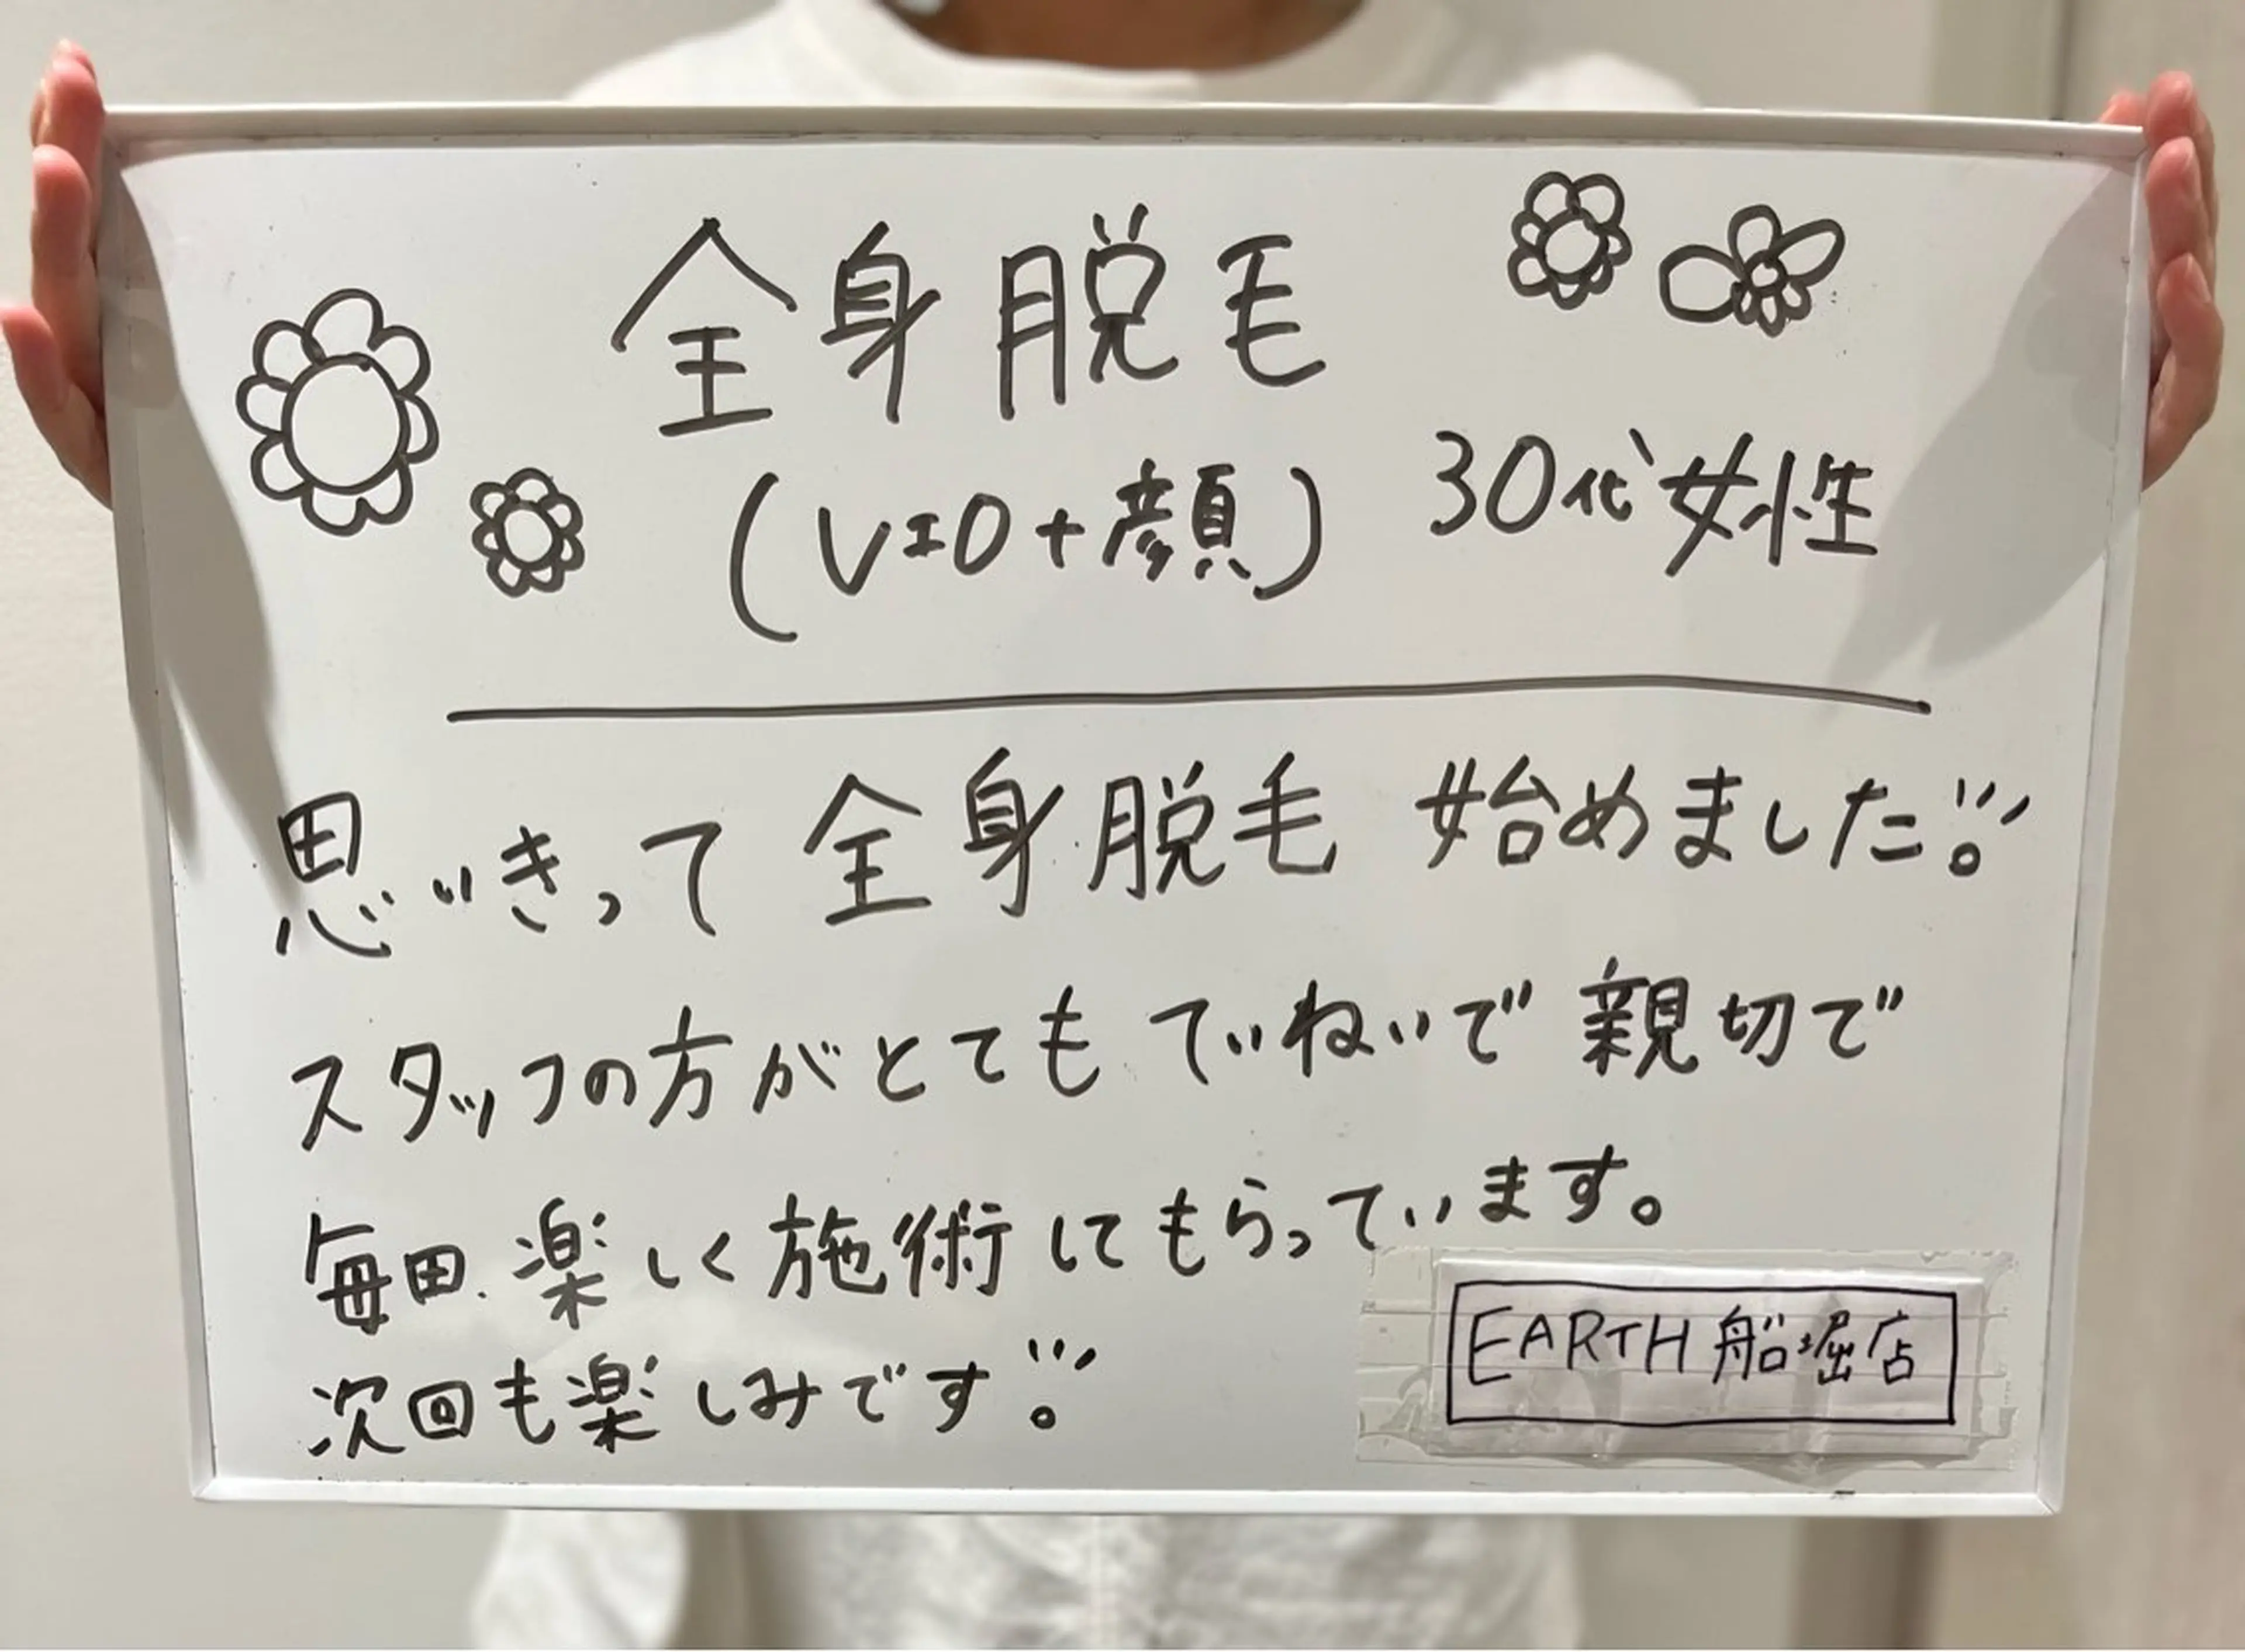 全身脱毛
(VIO+顔) 30代女性
思いきって全身脱毛 始めました!!!
スタッフの方がとても ていねいで 親切で
毎回、楽しく施術してもらっています。
次回も楽しみです!!!
EARTH 船堀店